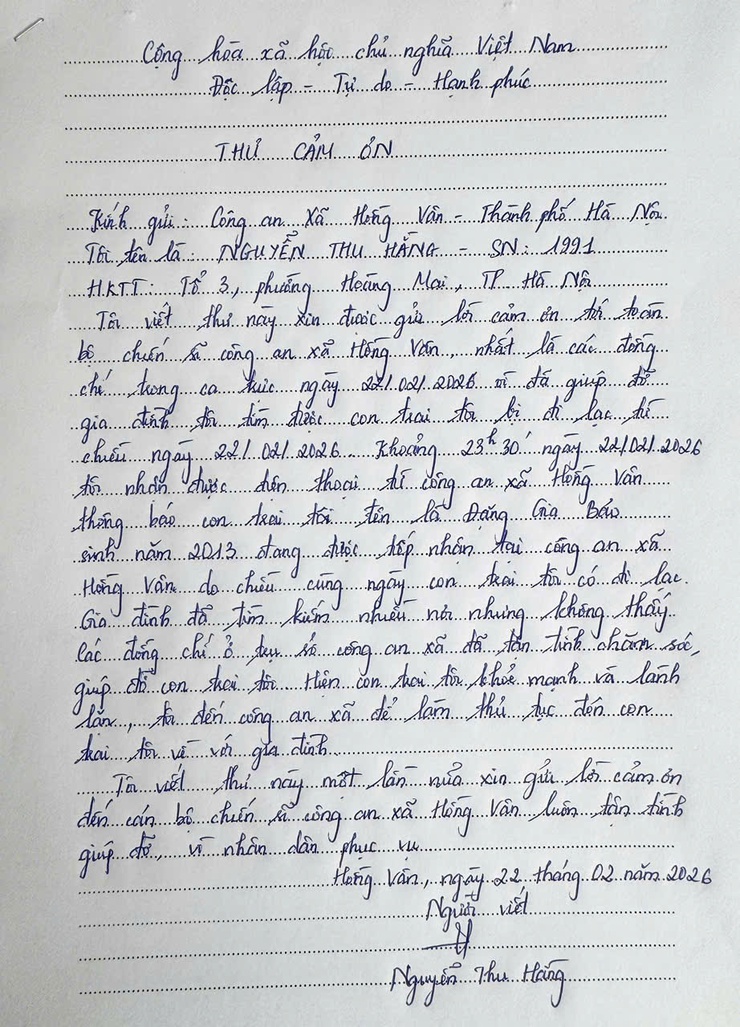 Cộng hòa xã hội chủ nghĩa Việt Nam
Độc lập - Tự do - Hạnh phúc
THƯ CẢM ƠN
Kính gửi: Công an Xã Hồng Vân - Thành phố Hà Nội
Tôi tên là: NGUYỄN THU HẰNG - SN: 1991
HKTT: Tổ 3, phường Hoàng Mai, TP Hà Nội
Tôi viết thư này xin được gửi lời cảm ơn tới toàn
bộ chiến sĩ công an xã Hồng Vân, nhất là các đồng
chí trong ca trực ngày 22/02/2026 vì đã giúp đỡ
gia đình tôi tìm được con trai tôi bị đi lạc từ
chiều ngày 22/02/2026. Khoảng 23h30' ngày 22/02/2026
tôi nhận được điện thoại từ công an xã Hồng Vân
thông báo con trai tôi tên là Đặng Gia Bảo
sinh năm 2013 đang được tiếp nhận tại công an xã
Hồng Vân do chiều cùng ngày con trai tôi có đi lạc.
Gia đình đã tìm kiếm nhiều nơi nhưng không thấy.
Các đồng chí ở trụ sở công an xã đã tận tình chăm sóc,
giúp đỡ con trai tôi. Hiện con trai tôi khỏe mạnh và lành
lặn, tôi đến công an xã để làm thủ tục đến con
trai tôi về với gia đình.
Tôi viết thư này một lần nữa xin gửi lời cảm ơn
đến cán bộ chiến sĩ công an xã Hồng Vân luôn tận tình
giúp đỡ, vì nhân dân phục vụ
Hồng Vân, ngày 22 tháng 02 năm 2026
Người viết
Nguyễn Thu Hằng